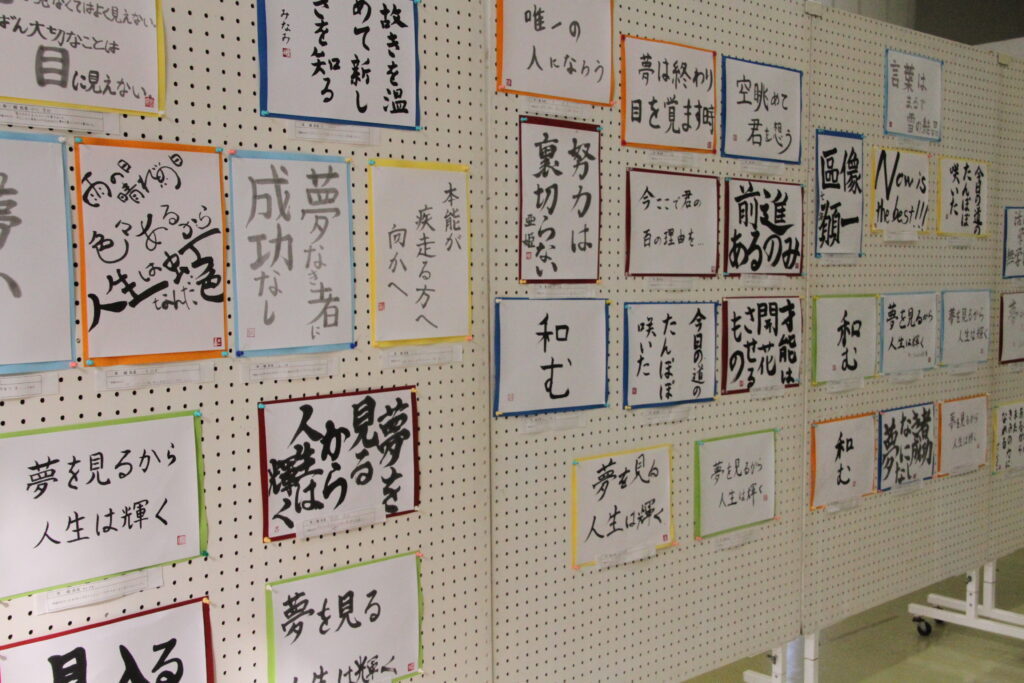 見なくてはよく見えない。
ばん大切なことは
目に見えない。
故きを温
めて新し
きを知る
みなみ
雨の日晴れの日
色々あるから
人生は虹色
なんだ
夢なき者に
成功なし
本能が
疾走る方へ
向かへ
夢を見るから
人生は輝く
夢を
見る
から
人生は
輝く
夢を見る
人生は輝く
見る
唯一の
人になろう
夢は終わり
目を覚ます時
空眺めて
君を想う
努力は
裏切らない
亜姫
今ここで君の
百の理由を…
前進
あるのみ
和む
今日の道の
たんぽぽ
咲いた
才能は
開花
させる
もの
夢を見る
人生は輝く
夢を見るから
人生は輝く
言葉は
まるで
雪の結晶
Now is
the best!!!
今日の道の
たんぽぽ
咲いた
和む
夢を見るから
人生は輝く
夢を見るから
人生は輝く
和む
夢なき者
に成功
なし
夢を見るから
人生は輝く